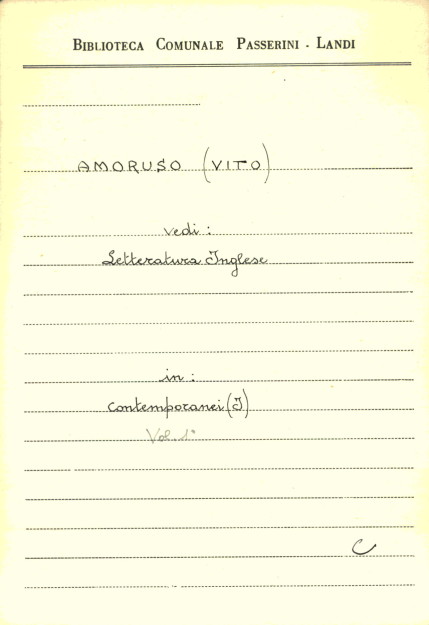 BIBLIOTECA COMUNALE PASSERINI - LANDI
AMORUSO (VITO)
vedi:
Letteratura Inglese
in:
Contemporanei (I)
Vol. 1°
C